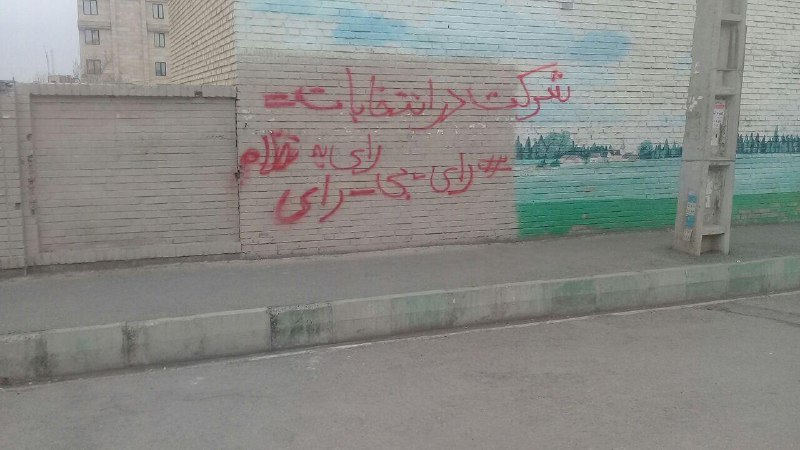 شرکت در انتخابات =
رای به نظام
#رای_بی_رای